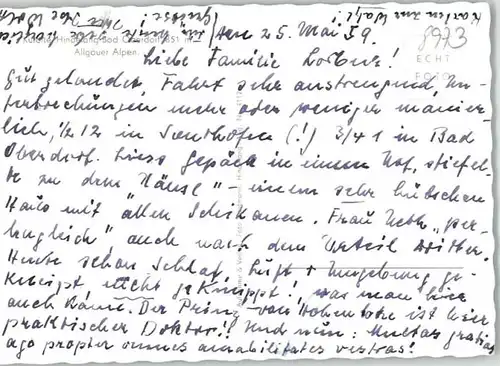 Karten zur Wahl!
Grüsse!
Kurort Hindelang-Bad Oberdorf 851 m
Allgäuer Alpen
den 25. Mai 59.
8973
ECHT
FOTO
Liebe Familie
Gut gelandet, Fahrt sehr anstrengend, Un-
terbrechungen mehr oder weniger manier-
lich, 1/2 12 in Sonthofen (!) 3/4 1 in Bad
Oberdorf. Liess Gepäck in einem Hof, stiefel-
te zu dem "Häusle" - einem sehr hübschen
Haus mit allen Schikanen. Frau
auch nach dem Urteil Dritter.
Heute schon Schlaf, Luft & Umgebung ge-
kneipt nicht geknippt!, was man hier
auch kann. Der Prinz von Hohenlohe ist hier
praktischer Doktor!! Und nun: Multas gratias
ago propter omnes amabilitates vestras!